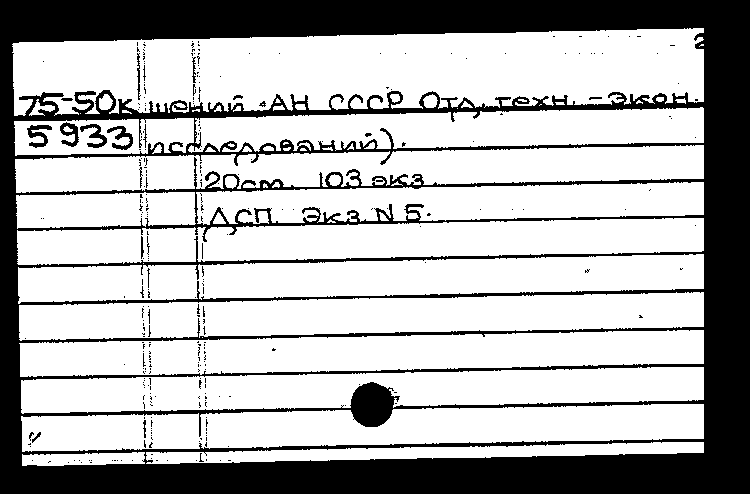 2
75-50к шений. АН СССР Отд. техн. - экон.
5933 исследований).
20 cm. 103 экз.
ДСП. Экз. N 5.